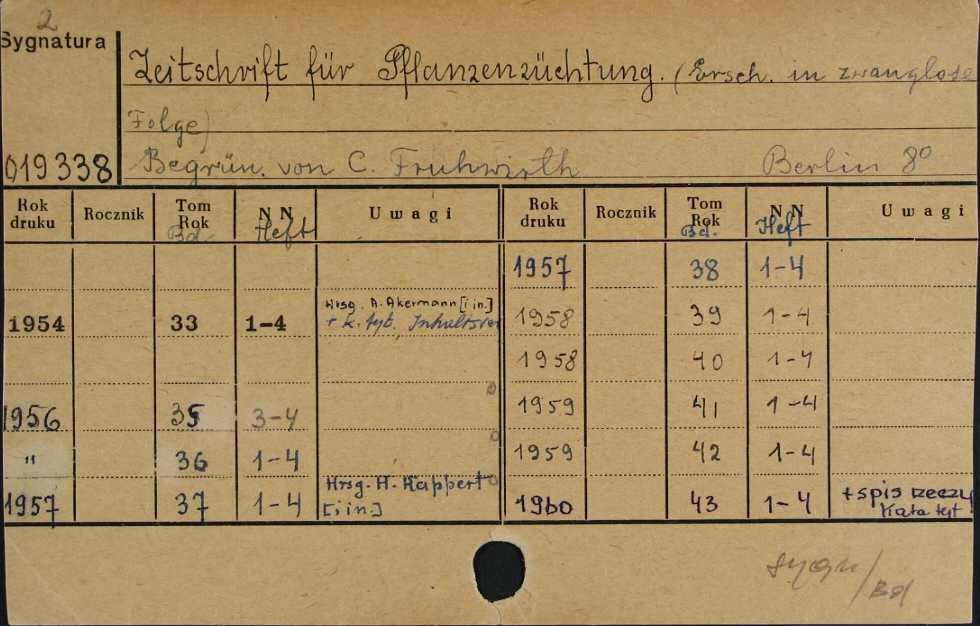 2
Sygnatura
Zeitschrift für Pflanzenzüchtung. (Ersch. in zwanglose
Folge)
019338 Begrün. von C. Fruhwirth Berlin 8°
Rok druku Rocznik Tom Rok Bd. NN Heft Uwagi Rok druku Rocznik Tom Rok Bd. NN Heft Uwagi
1957 38 1-4
1954 33 1-4 Hrsg. A. Akermann [i in.] + k. tyt. Inhaltsver 1958 39 1-4
1958 40 1-4
1956 35 3-4 1959 41 1-4
" 36 1-4 1959 42 1-4
1957 37 1-4 Hrsg. H. Kappert [i in.] 1960 43 1-4 + spis rzeczy karta tyt
sygn/Bd